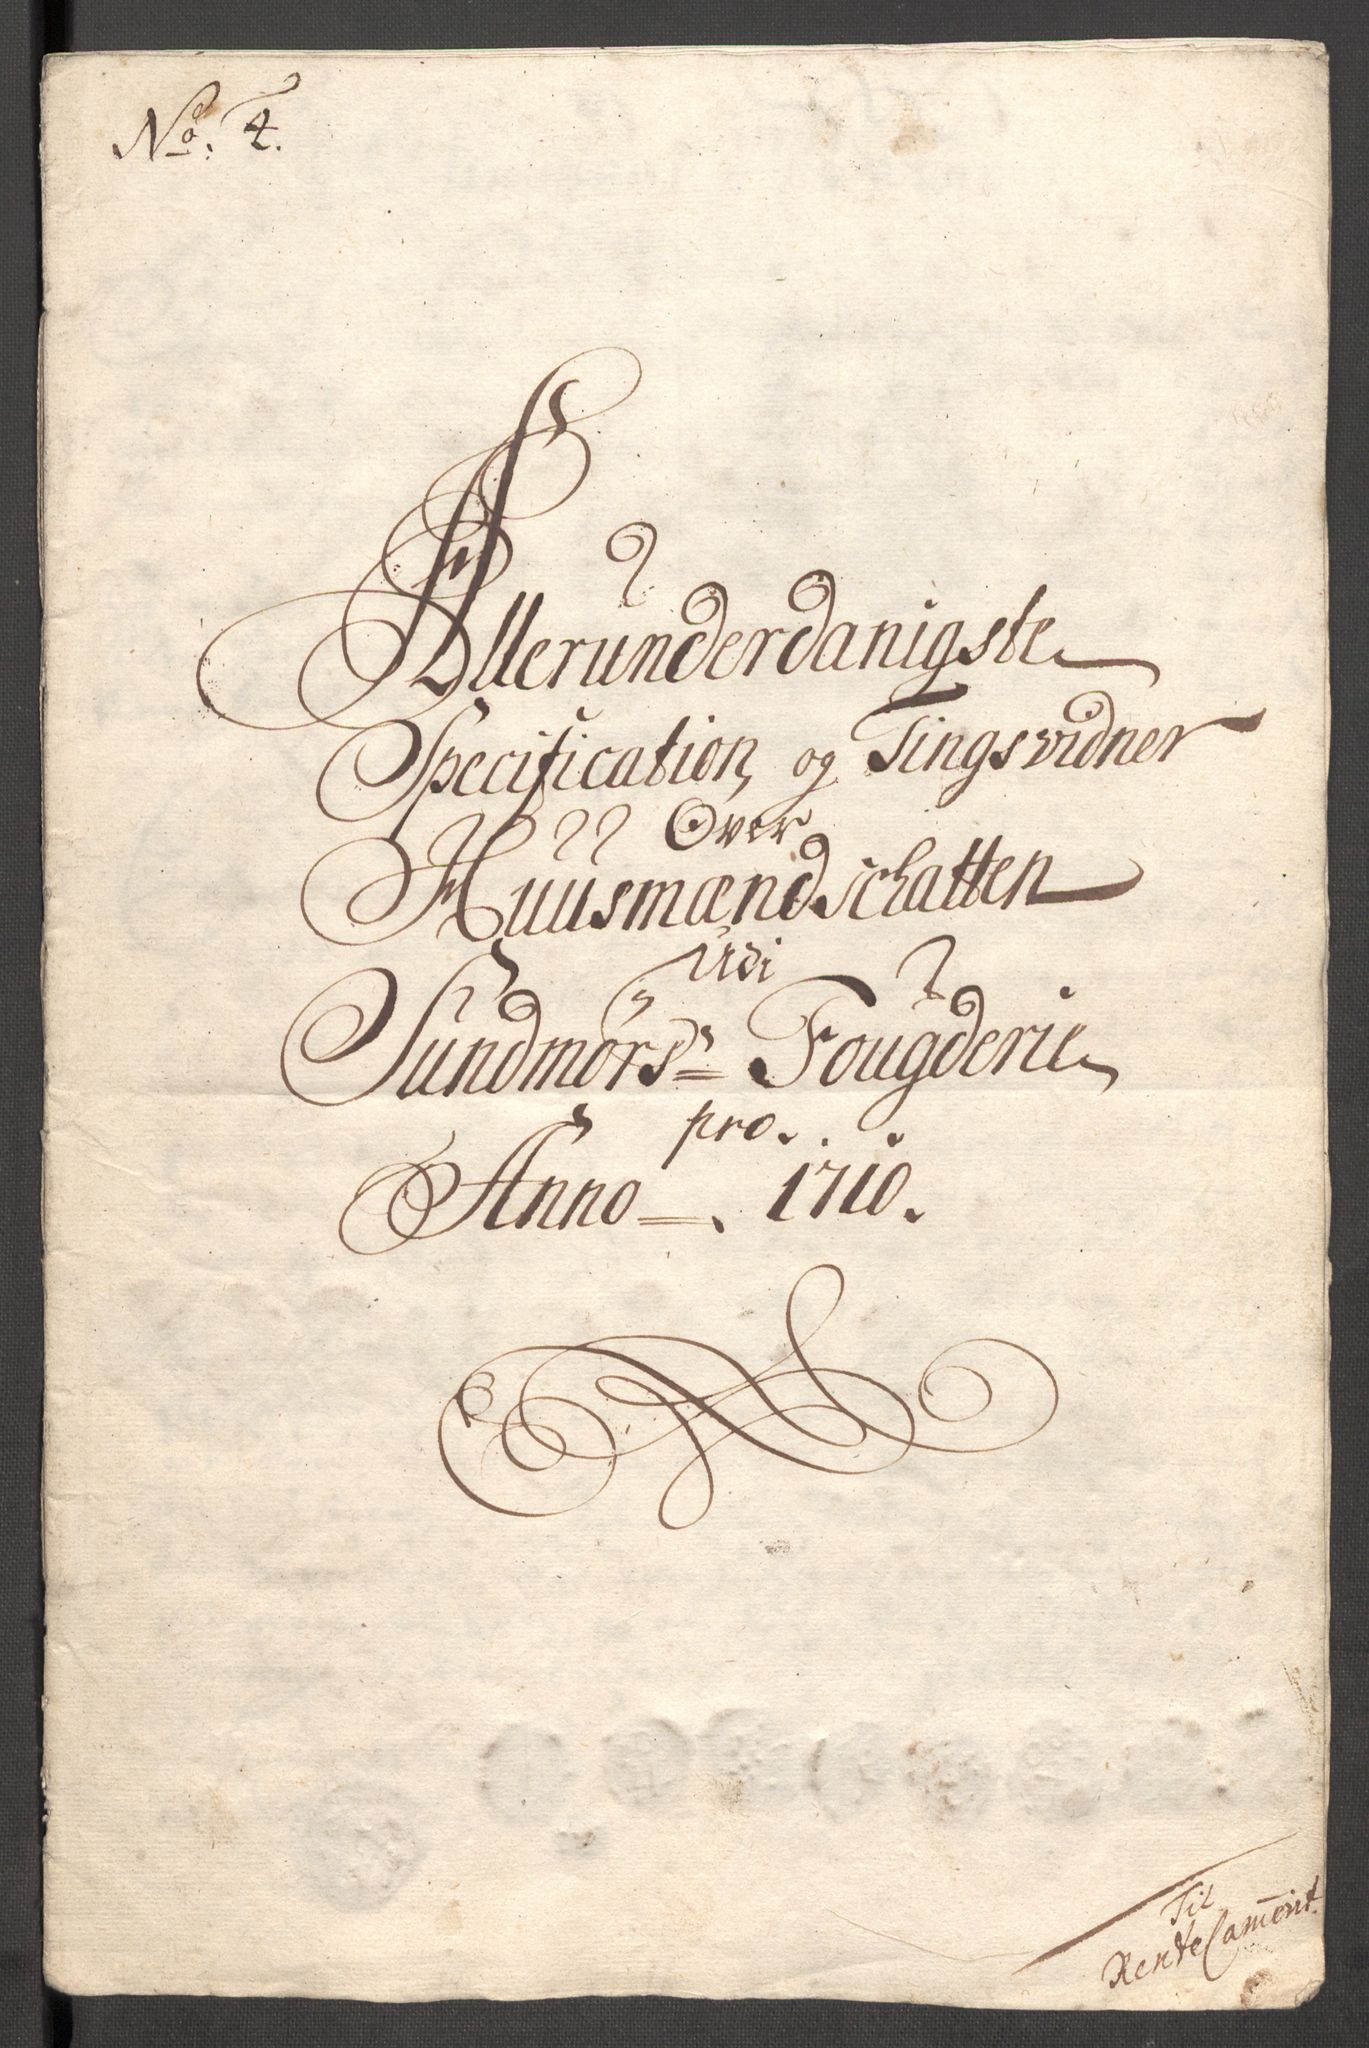 No. 4.
Allerunderdanigste
Specification, og Tingsvidner
Over
Huusmændschatten
Udi
Sundmörs= Fougderie
pro.
Anno =. 1710.
Til
Rente Camerit.